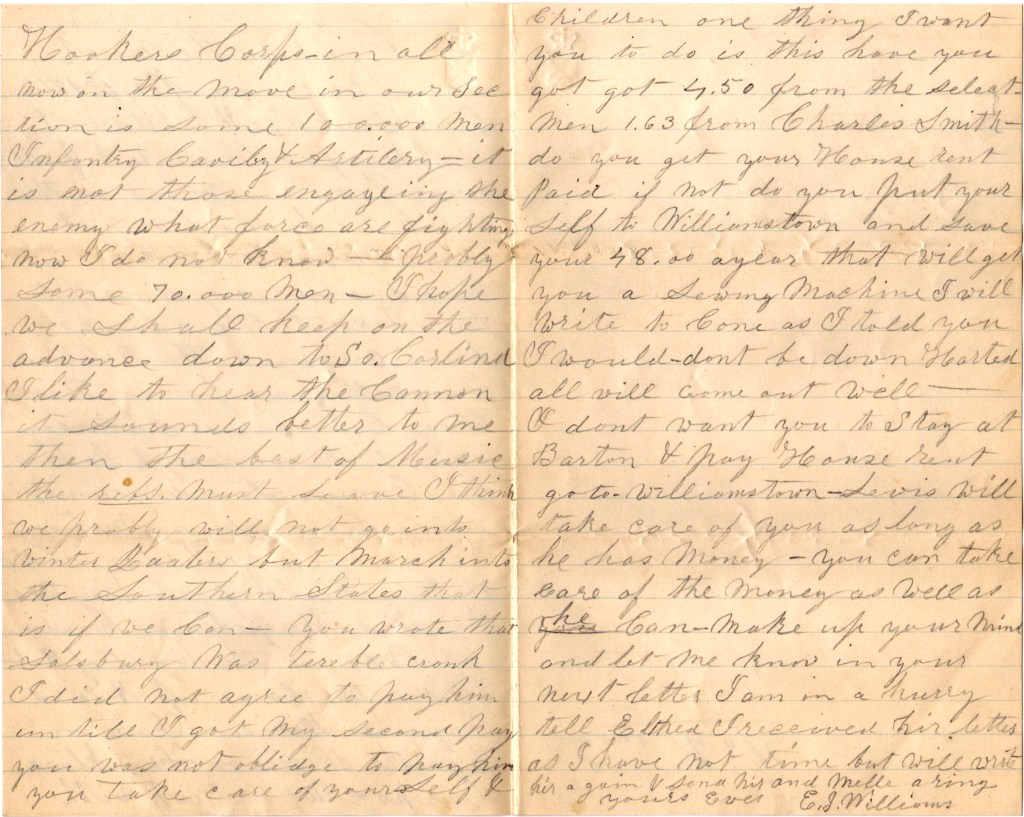 Hookers Corps - in all
now on the move in our Sec
tion is some 100.000 Men
Infontry Cavilry & Artilery - it
is not those engageing the
enemy what force are fighting
now I do not know - probly
some 70.000 Men - I hope
we shall keep on the
advance down to So. Carlind
I like to hear the Cannon
it sounds better to me
then the best of Music
the rebs. must leave I think
we probly will not go into
winter Quaters but March into
the Southern States that
is if we Can - You wrote that
Salsbury Was terible cronk
I did not agree to pay him
un till I got My second pay
you was not oblidge to pay him
you take care of your Self &
Children one thing I want
you to do is this have you
got got 4.50 from the select-
Men 1.63 from Charles Smith -
do you get your House rent
Paid if not do you put your
Self to Williamstown and save
your 48.00 a year that will get
you a Sewing Machine I will
write to Cone as I told you
I would - dont be down Harted
all will come out well -
I dont want you to Stay at
Barton & pay House rent
go to - Williamstown - Lewis will
take care of you as long as
he has Money - you can take
care of the Money as well as
he Can - Make up your Mind
and let me know in your
next letter I am in a hurry
tell Ethed I received hir letter
as I have not time but will write
hir a gain & Send hir and Melle a ring
yours Ever E. J. Williams